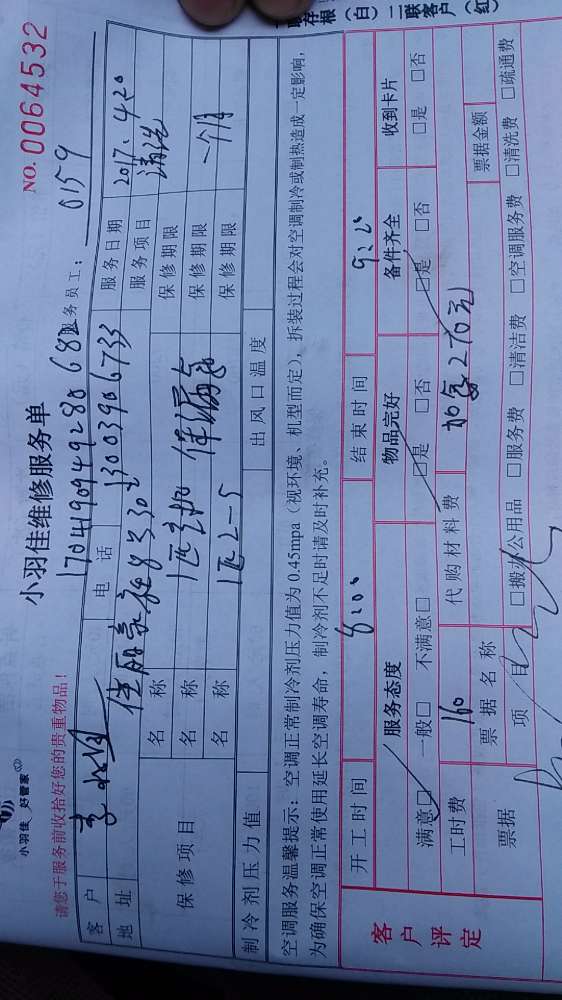 存根（白）二联客户（红）
小羽佳 好管家
小羽佳维修服务单
NO. 0064532
请您于服务前收拾好您的贵重物品！
170419094928068
服务员工： 0159
客户
电话 13003906733
服务日期 2017.4.20
地址
3302
服务项目 清洗
保修项目
名称
保修期限
名称 1匹
保修期限 一个月
名称 1匹2-5
保修期限
制冷剂压力值
出风口温度
空调服务温馨提示：空调正常制冷剂压力值为 0.45mpa（视环境、机型而定），拆装过程会对空调制冷或制热造成一定影响，
为确保空调正常使用延长空调寿命，制冷剂不足时请及时补充。
客户评定
开工时间 8:00
结束时间 9:20
服务态度
物品完好
备件齐全
收到卡片
满意□ 一般□ 不满意□
□是 □否
□是 □否
□是 □否
工时费 160
代购材料费 加氟270元
票据
票据名称
票据金额
项目
□搬办公用品 □服务费 □清洁费 □空调服务费 □清洗费 □疏通费